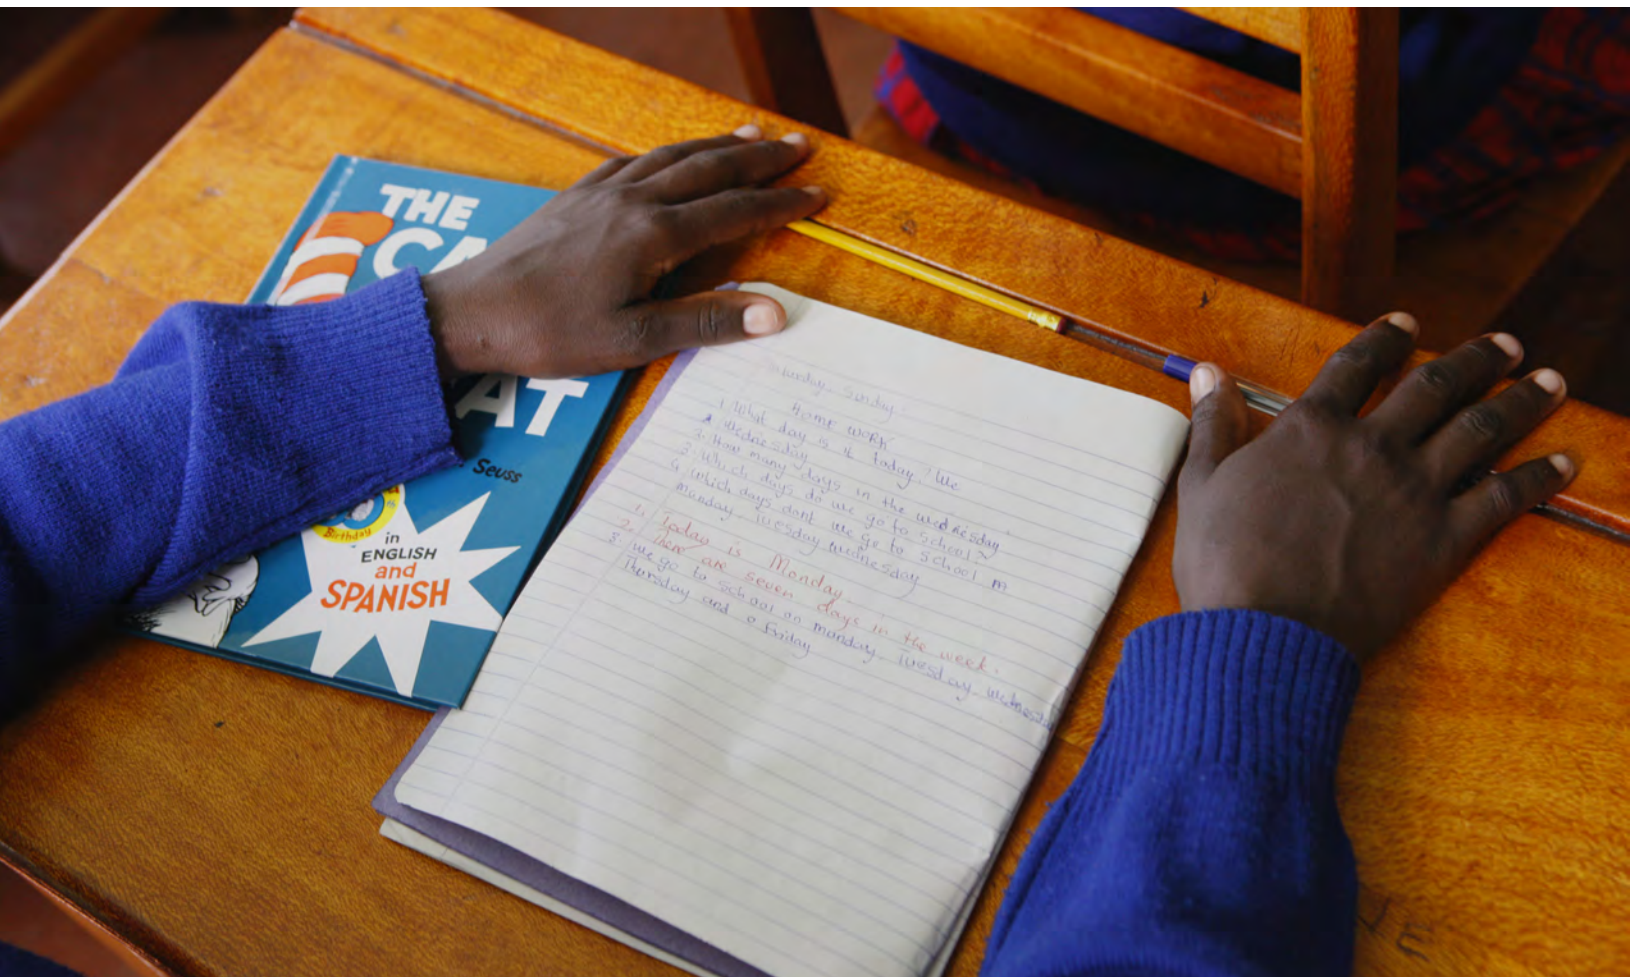 THE
CA
AT
Seuss
Birthday
in
ENGLISH
and
SPANISH
Sunday.
Home work
1. What day is it today? We
Wednesday
2. How many days in the wednesday
3. Which days do we go to school
4. which days dont we go to school m
monday Tuesday wednesday
1. Today is Monday
2. There are seven days in the week.
3. We go to school on monday Tuesday wednesday
Thursday and
Friday